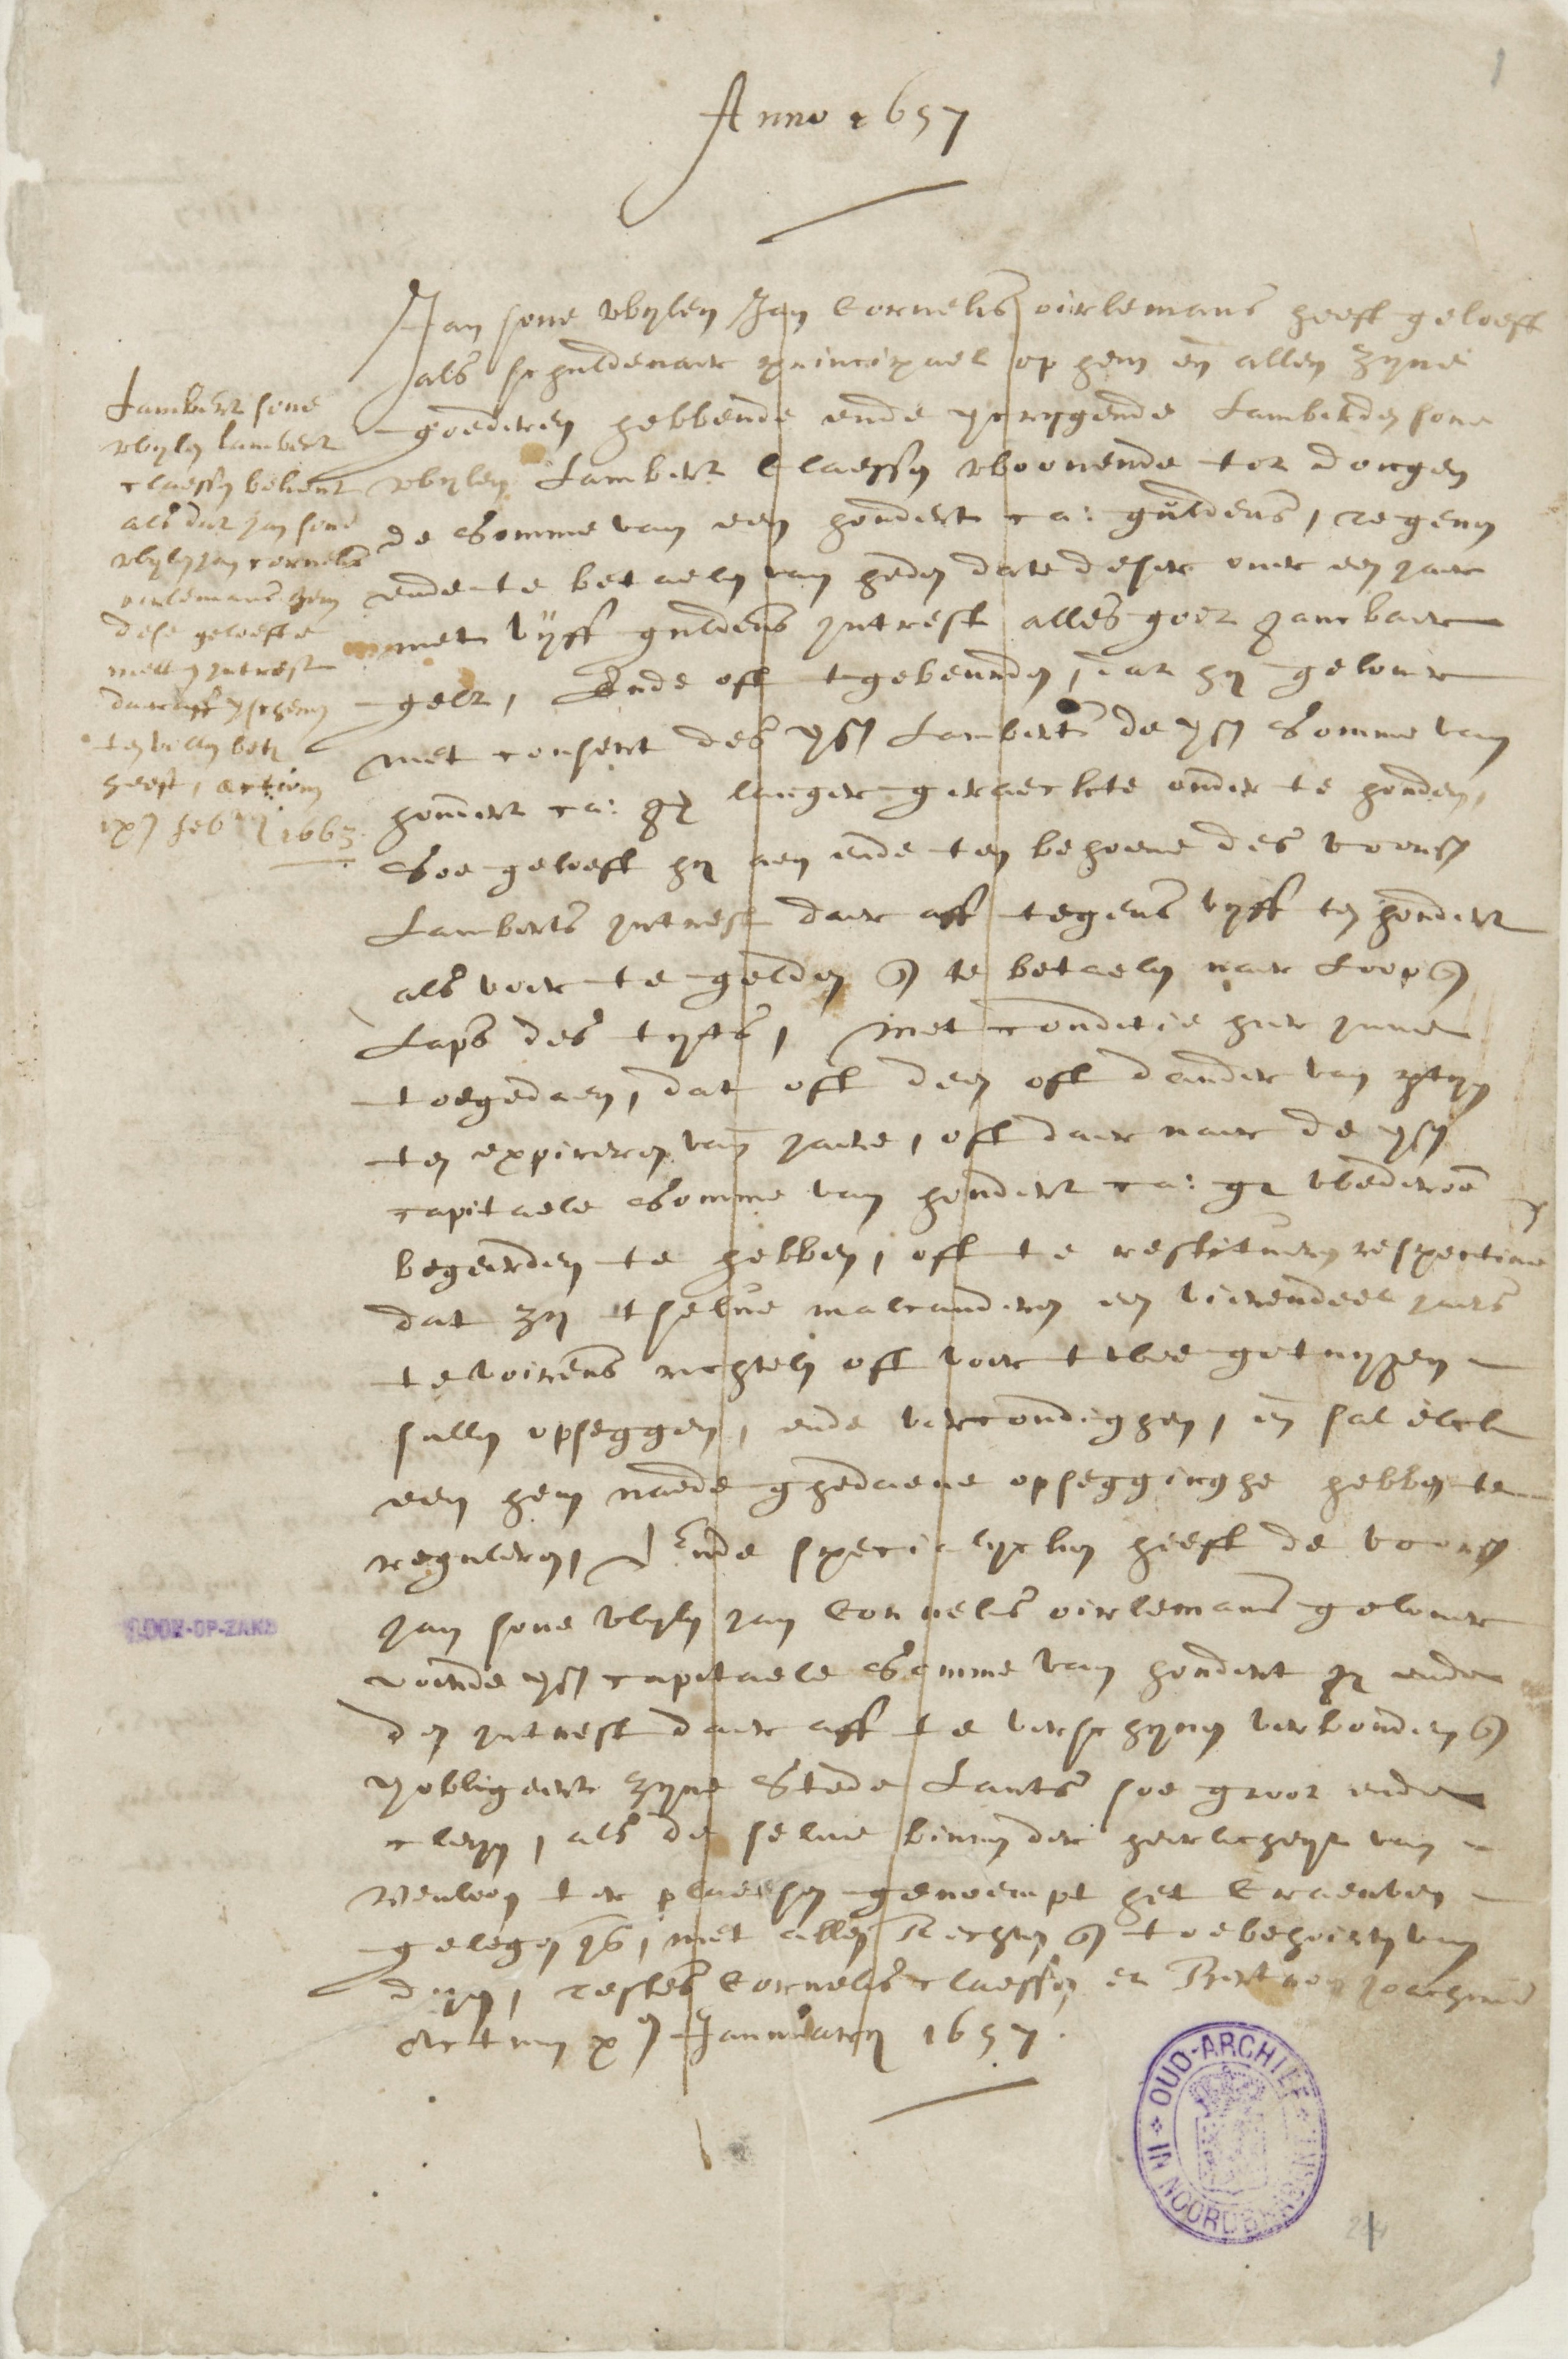 1
Anno 1657
Jan sone wijlen Jan Cornelis oirlemans heeft geloeft
als schuldenair principael op hem en allen zyne
goederen hebbende ende vercrijgende Lamberden sone
wijlen Lambert Claessen woonende tot dongen
de Somme van een hondert ca: guldens, te geven
ende te betaelen van heden date deser over een jaer
met vijff guldens intrest alles goet ganckbaer
gelt, Ende oft tgebeurden, dat hij gelover
met consent des vs Lamberts de vs Somme van
hondert ca: gl langer geraeckte onder te houden,
Soe geloeft hij aen ende ten behoeve des voors
Lamberts intrest daer aff tegens vijff ten hondert
als voer te gelden en te betaelen naer Loop en
Laps des tyts, Met conditie hier inne
toegedaen, dat oft deen oft dander van
ten expireren van jaere, oft daer naer de vs
capitaele Somme van hondert ca: gl wederom
begeerden te hebben, oft te restitueren respective
dat zij tselve malcanderen een vierendeel jaers
te voirens rechtel oft voer twee getuijgen
sullen opseggen, ende vercondighen, en sal elck
een hem naede ghedaene opsegginghe hebben te
reguleren, Ende specialycken heeft de voors
jan sone wijlen jan Cornelis oirlemans gelover
voirde vs capitaele Somme van hondert gl ende
den intrest daer aff te verschynen verbonden en
verobligeert zyne Stede Lants soe groot ende
cleyn, als de selve binnen der heerlicheyt van
Venloon ter plaetsen genoempt het Craenven
gelegen is, met allen Rechten en toebehoirten van
dijen, testes Cornelis Claessen et Bertram joachims
Actum Januarij 1657.
Lambert sone
wijlen lambert
claessen bekent
als dat jan sone
wijlen jan cornelis
oirlemans hem
dese geloefte
metten intrest
daer aff verschenen
ten vollen bet
heeft, actum
febr 1663.
LOON-OP-ZAND
OUD-ARCHIEF IN NOORDBRABANT